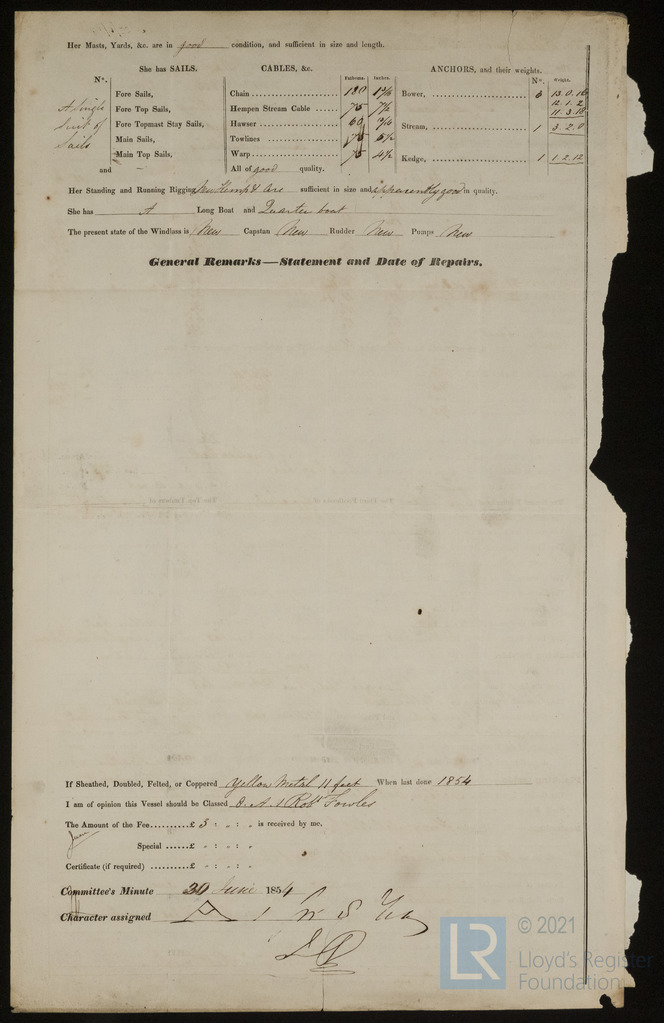 Her Masts, Yards, &c. are in good condition, and sufficient in size and length.
She has SAILS.
CABLES, &c.
Fathoms. Inches.
ANCHORS, and their weights.
Nº. Weight.
Nº.
A Single Suit of Sails
Fore Sails,
Fore Top Sails,
Fore Topmast Stay Sails,
Main Sails,
Main Top Sails,
and
Chain 180
Hempen Stream Cable 75 7½
Hawser 60
Towlines 75 5½
Warp 75 4½
All of good quality.
Bower, 3 13.0.16
12.1.2
11.3.18
Stream, 1 3.2.0
Kedge, 1 1.2.12
Her Standing and Running Rigging New Hemp & are sufficient in size and apparently good in quality.
She has A Long Boat and Quarter boat
The present state of the Windlass is New Capstan New Rudder New Pumps New
General Remarks—Statement and Date of Repairs.
If Sheathed, Doubled, Felted, or Coppered Yellow Metal 11 feet When last done 1854
I am of opinion this Vessel should be Classed 8. A. 1 Robt Fowles
The Amount of the Fee..........£ 5 : - : - is received by me,
Special ......£ - : - : -
Certificate (if required) .........£ - : - : -
Committee's Minute 30 June 1854
Character assigned A 1
LR
© 2021
Lloyd's Register
Foundation